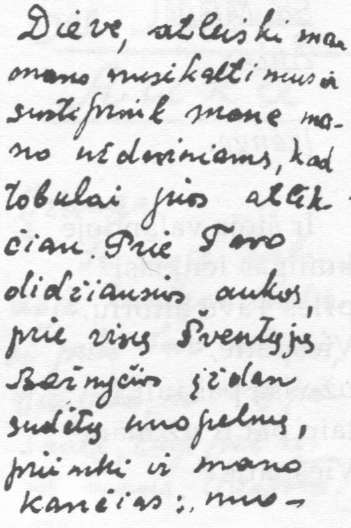 Dieve, atleiski man
mano nusikaltimus ir
sustiprink mane ma-
no uždaviniams, kad
tobulai juos atlik-
čiau. Prie Tavo
didžiausios aukos,
prie visų Šventųjų,
Bažnyčios iždan
sudėtų nuopelnų,
priimki ir mano
kančias:, nuo-